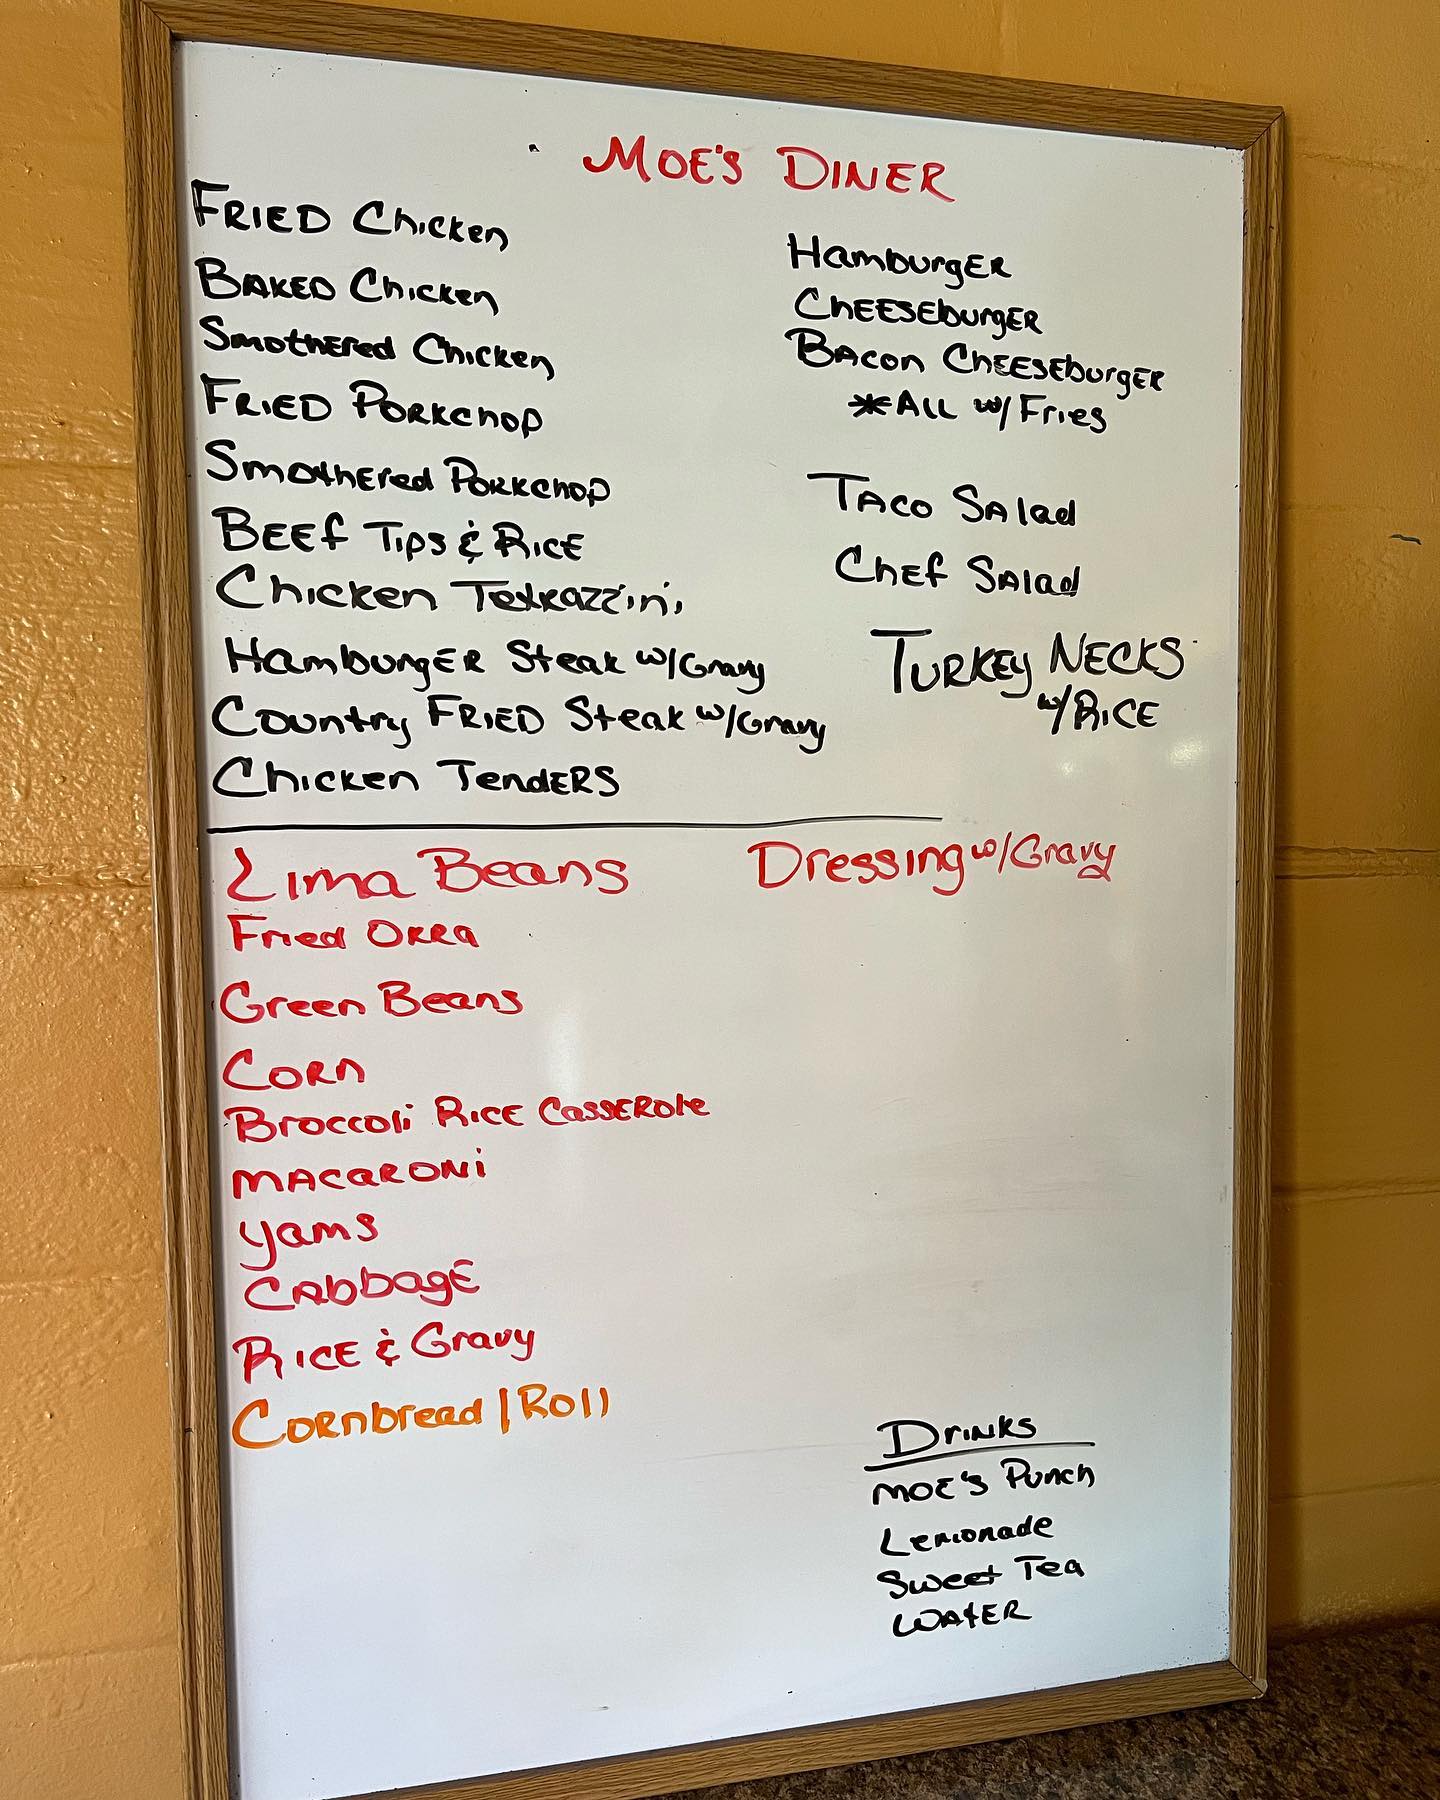 MOE'S DINER
FRIED Chicken
BAKED Chicken
Smothered Chicken
FRIED PORKCHOP
Smothered PORKCHOP
BEEF Tips & RICE
Chicken Tetrazzini
Hamburger Steak w/Gravy
Country FRIED Steak w/Gravy
Chicken TendERS
HamburgER
ChEESEburgER
BACon ChEESEburgER
*ALL w/Fries
TACO SAlad
ChEf SAlad
TURKEY NECKS
w/RICE
Lima Beans
Fried OKRA
Green Beans
CORN
Broccoli RICE CASSEROle
MACARONi
Yams
CAbbagE
RICE & Gravy
CORNbread/Roll
Dressing w/Gravy
Drinks
MOE'S Punch
Lemonade
Sweet Tea
WATER